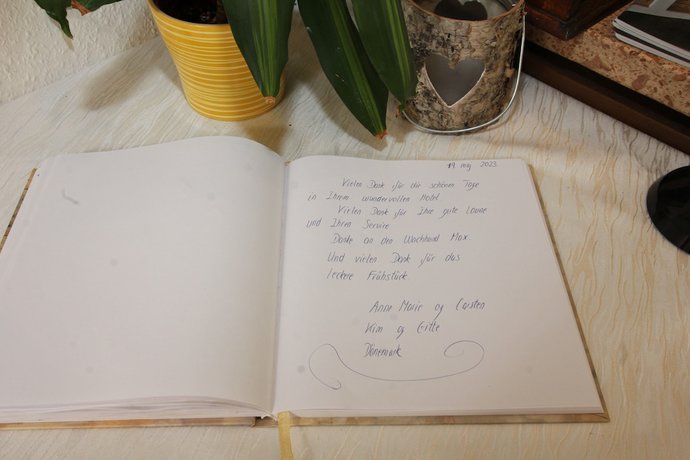 19. maj 2023.
Vielen Dank für die schönen Tage
in Ihrem wundervollen Hotel.
Vielen Dank für Ihre gute Laune
und Ihren Service.
Danke an den Wachhund Max.
Und vielen Dank für das
leckere Frühstück.
Anne-Marie og Carsten
Kim og Gitte
Dänemark